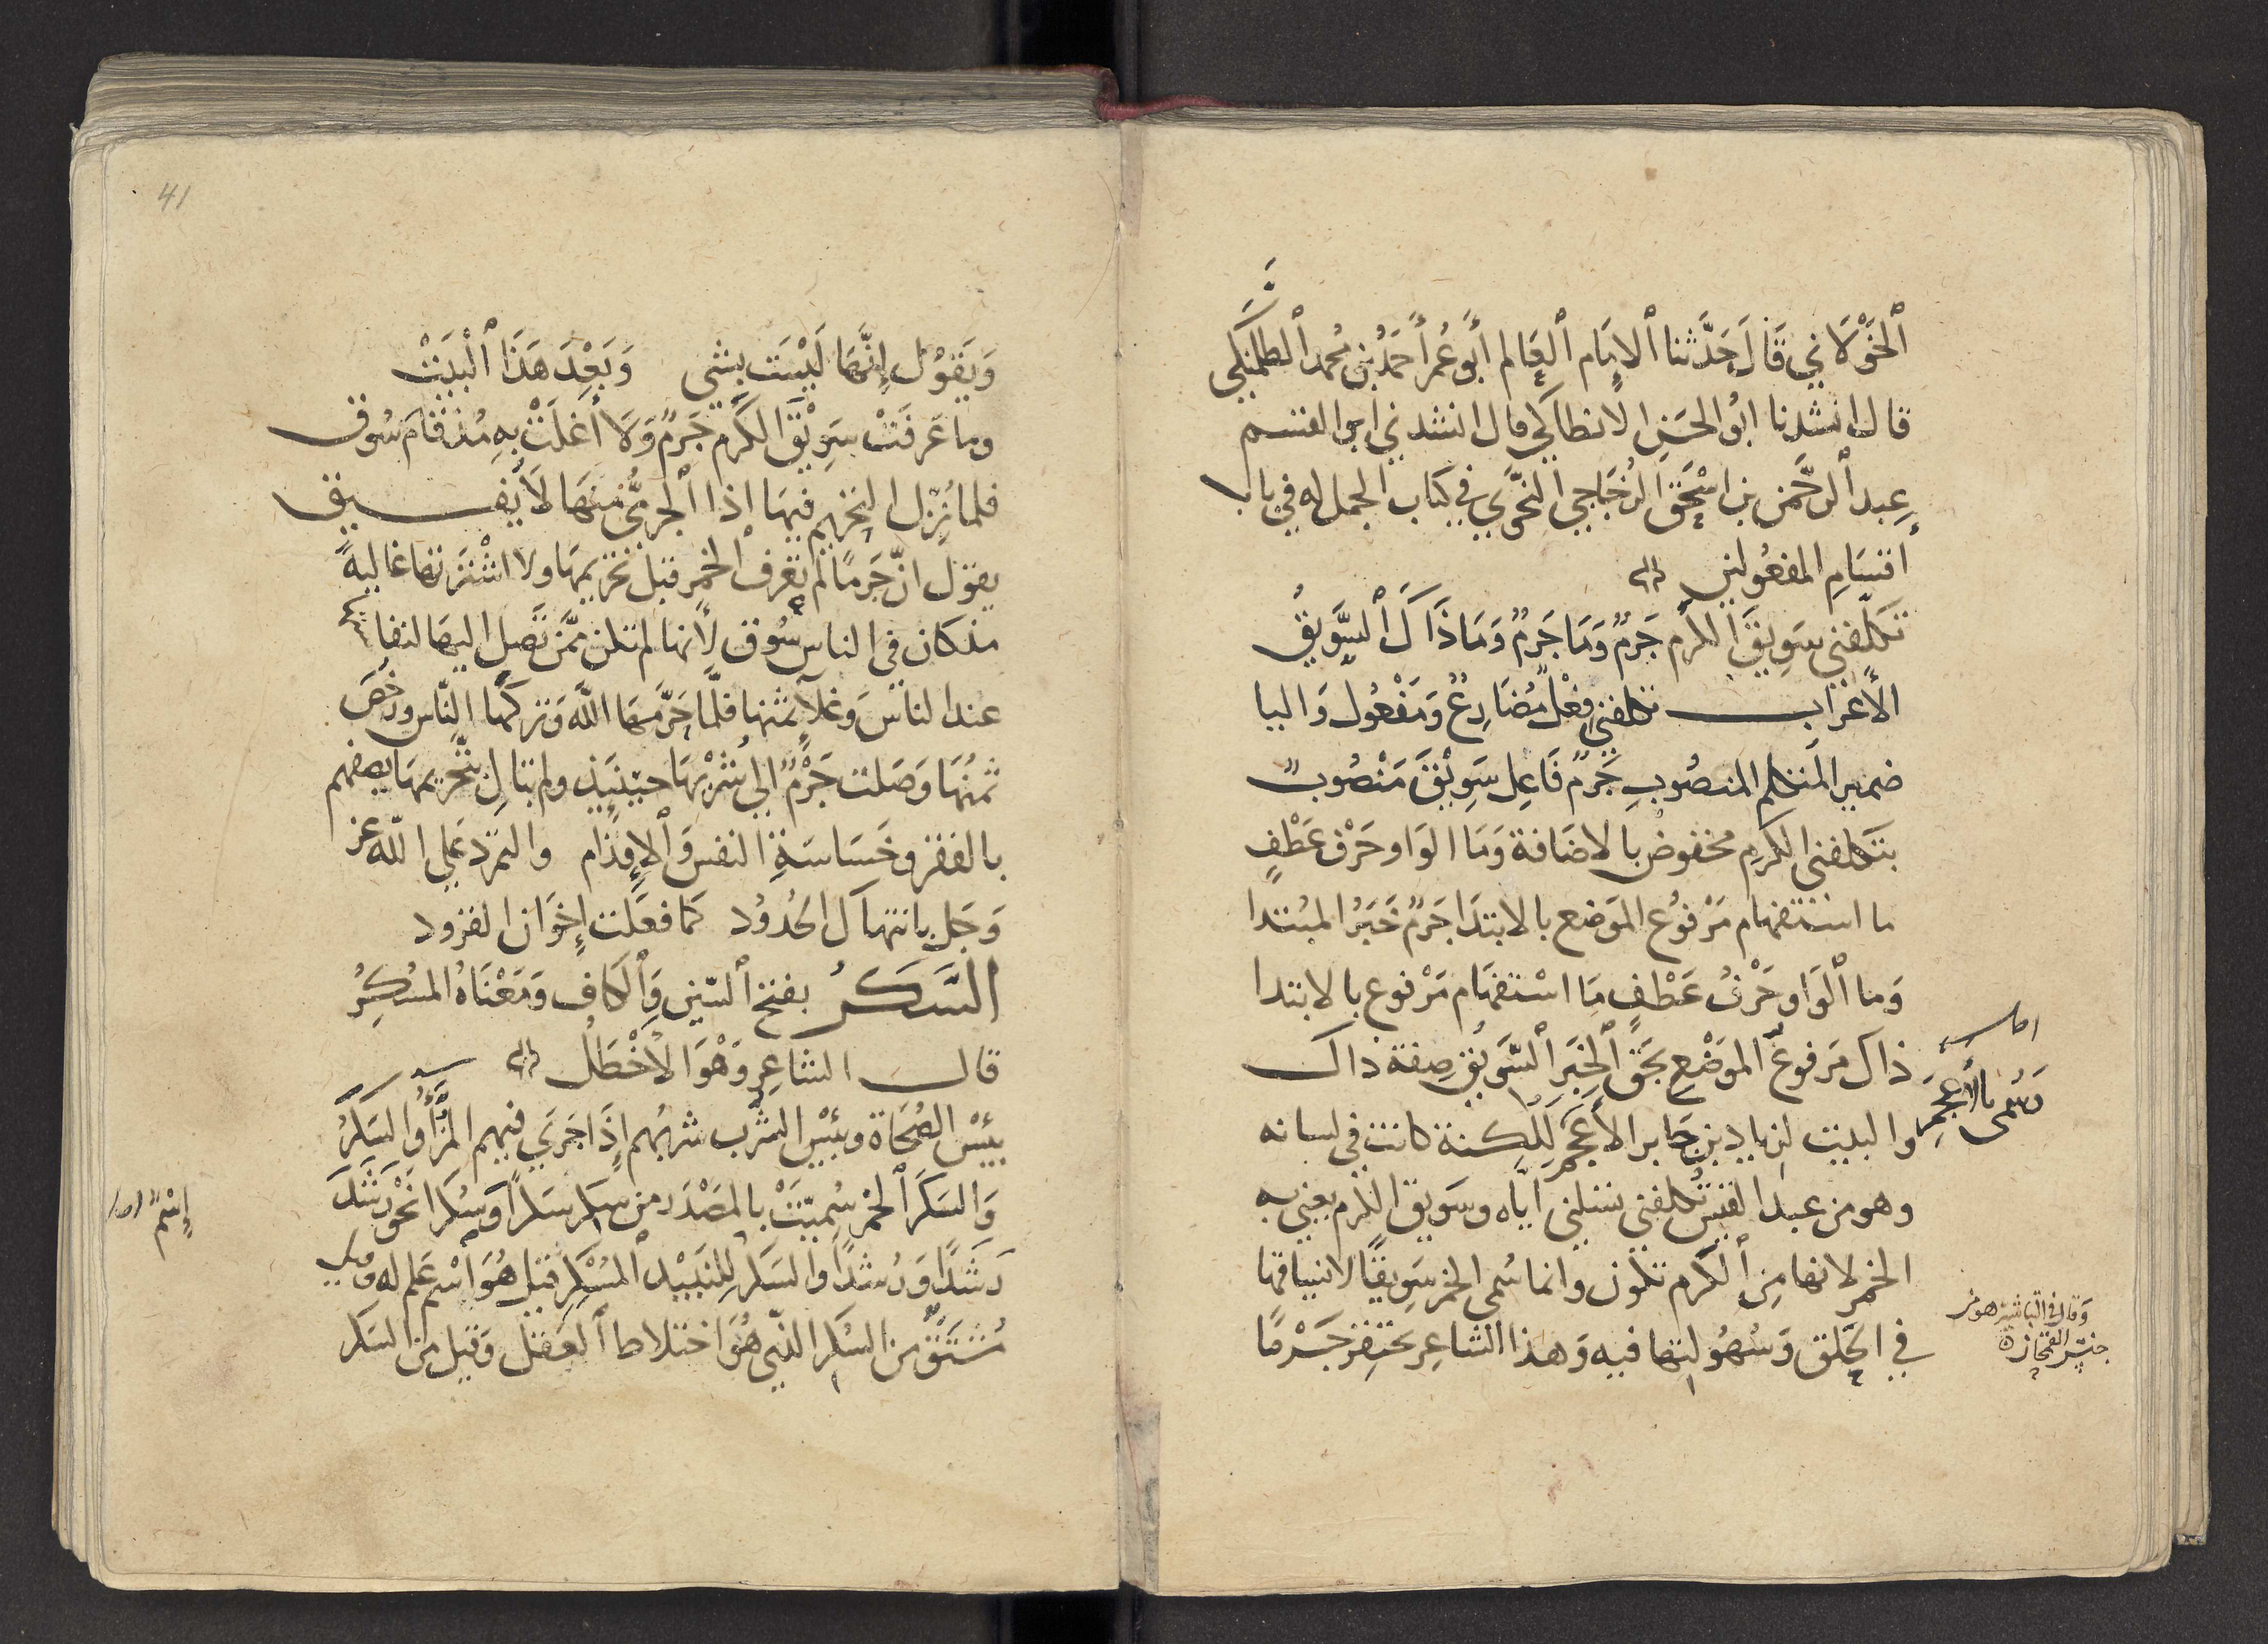 ٱلخَوْلَاني قَالَ حَدَّثنا ٱلإمَام ٱلعَالم أبُو عُمَر أحمَدُ بن مُحمد ٱلطلمَنكي
قال انشدنا ابُو الحسَن الانطاكي قال انشدني ابو القسم
عبد ٱلرحَّمَن بن اسْحَق الزُجَاجي النحْوي في كتاب الجمل له في باب
أقسَامِ المفعُولين
تكلّفني سَوِيقَ الكرم جَرمٌ وَمَا جَرمٌ وَمَا ذَاكَ ٱلسَّوِيقُ
الأعْرَاب تكلفني فِعْلٌ مُضَارِعٌ وَمَفْعُول وَاليا
ضمير المتكلم المنصُوب جَرمٌ فَاعِل سَوِيْقَ مَنْصُوبٌ
بتكلفني الكرمِ مخفوض بالاضَافة وَمَا الوَاو حَرْف عَطْفٍ
ما استفهام مَرْفوُع الموَضع بالابتدَا جَرمٌ خَبَرُ المبُتدا
وَما ٱلوَاو حَرْفُ عَطْفٍ مَا اسْتفهَام مَرْفوع بالابتدا
ذاك مَرفوعُ الموَضْعِ بحَقّ الخبَرِ ٱلسَّوِيْق صِفة ذاك
والبيت لزياد بن جَابر الأعجَمِ لِلِكنة كانت في لسانه
وهو من عبد القيس تكلفني تسئلني ايّاه وسَويق الكرم يعني به
الخمر لانها مِن ٱلكرم تكون وانما سُمي الخمر سَوِيقًا لانسياقها
في الحَلق وَسُهُولتها فيه وَهذا الشاعِر يحتقر جَرْمًا
اصل
وَسُمى بالأعجَمِ
وَقال في الباشتر هو من
وَيَقوُل إنَّهَا لَيْسَت بشي وَبَعْدَ هَذَا ٱلْبَيَتْ
وما عَرفَتْ سَوِيْقَ الكَرم جَرمٌ وَلَا أغلَتْ بِهِ مُذ قَامَ سُوق
فلما نُزّل التحريم فيهَا اذا ٱلجرميُّ منهَا لَا يُفيق
يقول انّ جَرمًا لم تعَرف الخمر قبل تحريمهَا ولا اشْتَرَتها غاليةً
مذ كان في الناس سُوق لأنها لم تكن ممَّن تَصِل اليهَا لنفا
عند الناس وَغلآء ثمنها فلَّما حَرَّمهَا اللّه وَتركهَا النّاس ورَخُصَ
ثمنُهَا وَصَلت جَرْمٌ الي شُرْبهَا حينَئِذٍ ولم تبَالِ بتَحريمهَا يصفهم
بالفقر وخَسَاسَةِ النفس وَٱلإقدَام والتمرّد عَلي اللّه عز
وَجَل بانتهاك الحُدُود كما فعَلت إخوَان القرود
السَّكَرُ بفتح ٱلسّين وَٱلكَاف وَمَعْنَاهُ المُسْكِرُ
قال الشاعِر وَهْوَ الاخْطَلُ
بِئسَ الصُحَاة وبئسَ الشَرْب شربهُم إذَا جَرَي فيهم المزَّآءُ والسَكَرُ
وَالسَكَر ٱلخمر سُميّتْ بالمصْدَر من سكِر سَكَراً وَسُكرا نَحْوَ رَشَدَ
رَشَدًا وَرُشْدًا والسَكَر لِلنَبيْذ ٱلمُسْكِر قيْل هُوَ اسْم عَلم له وَقيل
مُشتَقّ من السُكر الذي هُوَ اختلاط ٱلعقل وَقيل من السَكر
إسْمٌ اصل
41